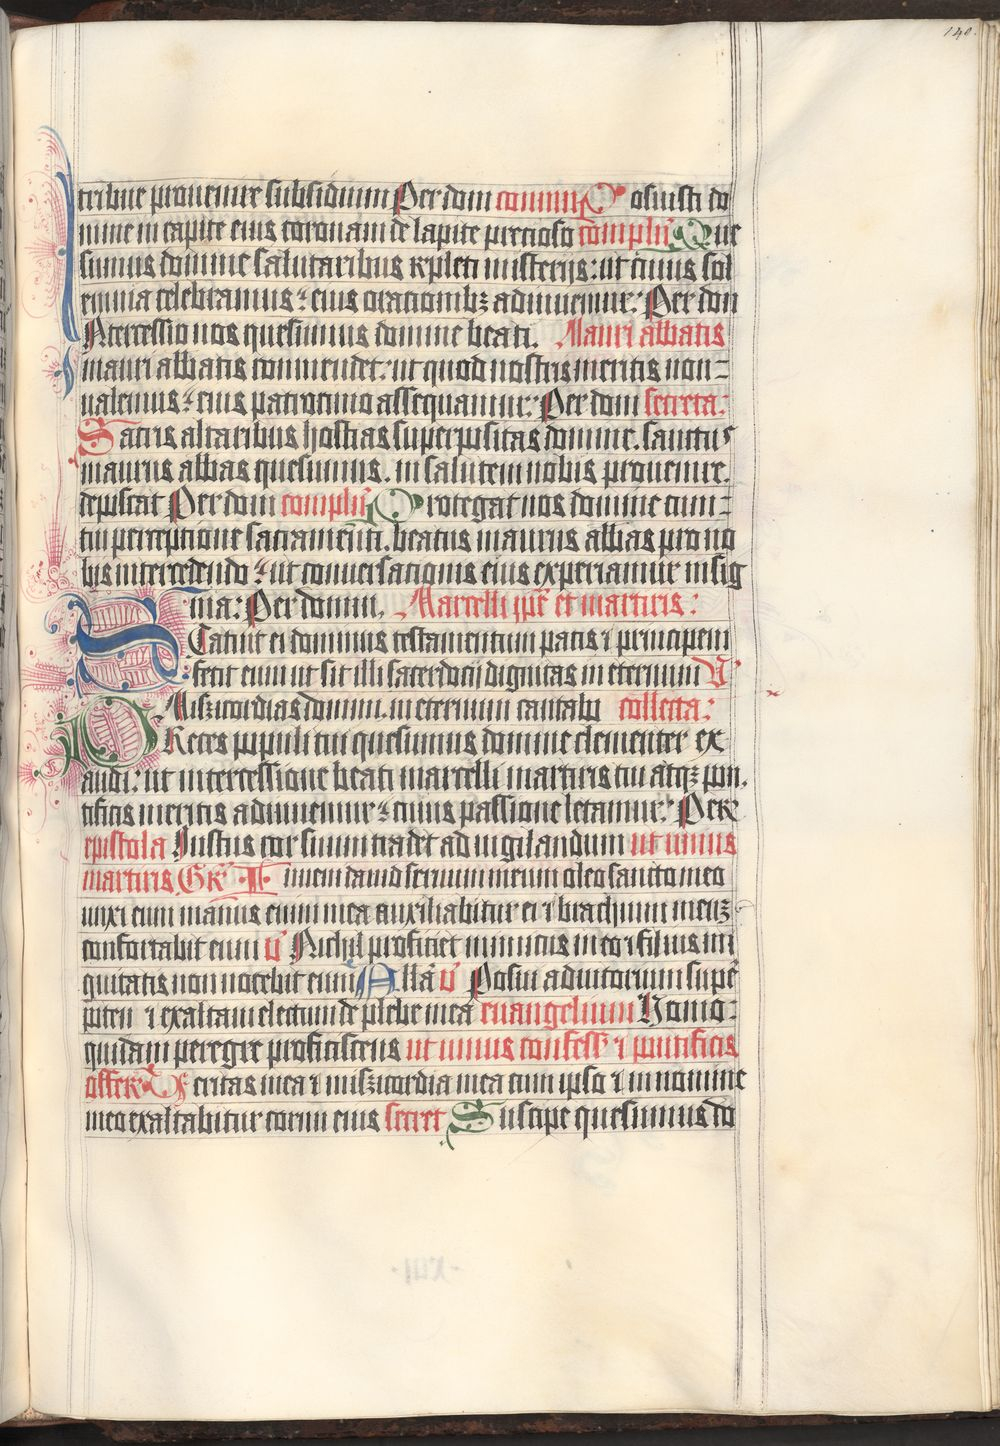 140.
tribue prouenire subsidium Per dom commū Posuisti do
mine in capite eius coronam de lapide precioso complīn Que
sumus domine salutaribus repleti misterijs: ut cuius sol
empnia celebramus: eius orationibꝫ adiuuemur: Per dom
Intercessio nos quesumus domine beati. Mauri abbatis
mauri abbatis commendet: ut quod nostris meritis non=
ualemus: eius patrocinio assequamur: Per dom secreta:
Sacris altaribus hostias superpositas domine. sanctus
maurus abbas quesumus. in salutem nobis prouenire.
deposcat Per dom complīn Protegat nos domine cum=
tui perceptione sacramenti. beatus maurus abbas pro no
bis intercedendo: ut conuersationis eius experiamur insig
nia: Per domin. Marcelli ppē et martiris:
Statuit ei dominus testamentum pacis ⁊ principem
fecit eum ut sit illi sacerdocij dignitas in eternum V̄
Misericordias domini. in eternum cantabo collecta:
PReces populi tui quesumus domine clementer ex
audi: ut intercessione beati marcelli martiris tui atqꝫ pon.
tificis meritis adiuuemur: cuius passione letamur: Per
epistola Iustus cor suum tradet ad uigilandum ut unius
martiris Gr̄ Inueni dauid seruum meum oleo sancto meo
unxi eum manus enim mea auxiliabitur ei ⁊ brachium meuꝫ
confortabit eum v̄ Nichil proficiet inimicus in eo ⁊ filius ini
quitatis non nocebit eum Allā v̄ Posui adiutorium supē
potentem ⁊ exaltaui electum de plebe mea euangelium Homo:
quidam peregre proficiscens ut unius confess̄ ⁊ pontificis
offer Veritas mea ⁊ misericordia mea cum ipso ⁊ in nomine
meo exaltabitur cornu eius secret Suscipe quesumus do